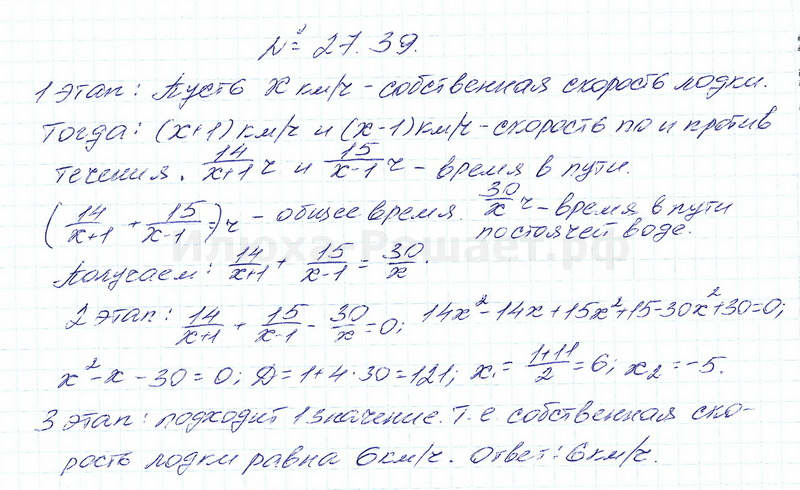 № 27.39.
1 этап: Пусть x км/ч - собственная скорость лодки.
Тогда: (x+1) км/ч и (x-1) км/ч - скорость по и против
течения. 14/(x+1) ч и 15/(x-1) ч - время в пути.
(14/(x+1) + 15/(x-1)) ч - общее время. 30/x ч - время в пути
по стоячей воде.
Получаем: 14/(x+1) + 15/(x-1) = 30/x.
2 этап: 14/(x+1) + 15/(x-1) - 30/x = 0; 14x² - 14x + 15x² + 15 - 30x² + 30 = 0;
x² - x - 30 = 0; D = 1 + 4·30 = 121; x₁ = (1+11)/2 = 6; x₂ = -5.
3 этап: подходит 1 значение. Т.е собственная ско-
рость лодки равна 6 км/ч. Ответ: 6 км/ч.
Илюха-Решает.рф